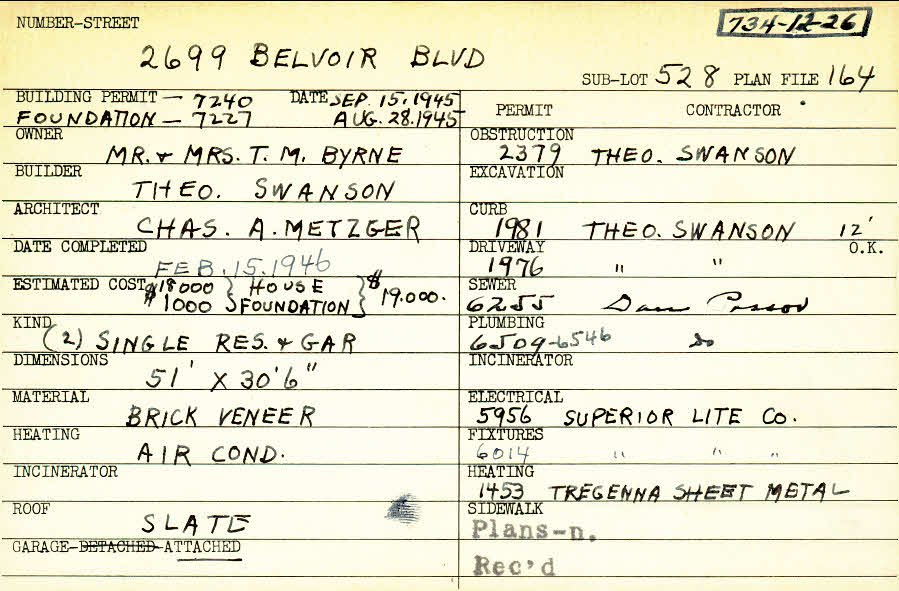 NUMBER-STREET
734-12-26
2699 BELVOIR BLVD
SUB-LOT 528 PLAN FILE 164
BUILDING PERMIT - 7240 DATE SEP. 15, 1945
FOUNDATION - 7227 AUG. 28. 1945
OWNER
MR. & MRS. T. M. BYRNE
BUILDER
THEO. SWANSON
ARCHITECT
CHAS. A. METZGER
DATE COMPLETED
FEB. 15. 1946
ESTIMATED COST $18000 } HOUSE } $19.000.
$1000 } FOUNDATION
KIND
(2) SINGLE RES. & GAR
DIMENSIONS
51' X 30'6"
MATERIAL
BRICK VENEER
HEATING
AIR COND.
INCINERATOR
ROOF
SLATE
GARAGE-DETACHED-ATTACHED
PERMIT CONTRACTOR
OBSTRUCTION
2379 THEO. SWANSON
EXCAVATION
CURB
1981 THEO. SWANSON 12'
DRIVEWAY O.K.
1976 " "
SEWER
6255 Dan
PLUMBING
6509-6546 do
INCINERATOR
ELECTRICAL
5956 SUPERIOR LITE CO.
FIXTURES
6014 " " "
HEATING
1453 TREGENNA SHEET METAL
SIDEWALK
Plans-n.
Rec'd